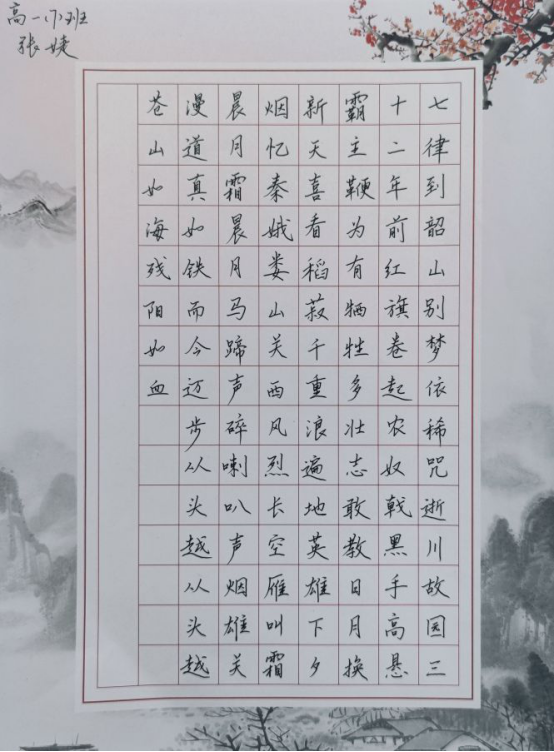 高一(7)班
张婕
七律到韶山别梦依稀咒逝川故园三
十二年前红旗卷起农奴戟黑手高悬
霸主鞭为有牺牲多壮志敢教日月换
新天喜看稻菽千重浪遍地英雄下夕
烟忆秦娥娄山关西风烈长空雁叫霜
晨月霜晨月马蹄声碎喇叭声烟雄关
漫道真如铁而今迈步从头越从头越
苍山如海残阳如血